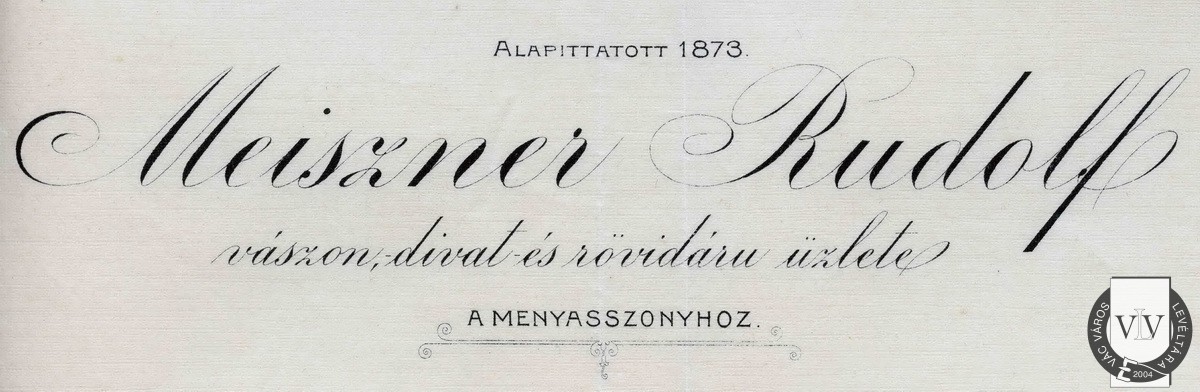 ALAPITTATOTT 1873.
Meiszner Rudolf
vászon,-divat-és rövidáru üzlete
A MENYASSZONYHOZ.
VÁC VÁROS LEVÉLTÁRA
VLV
2004